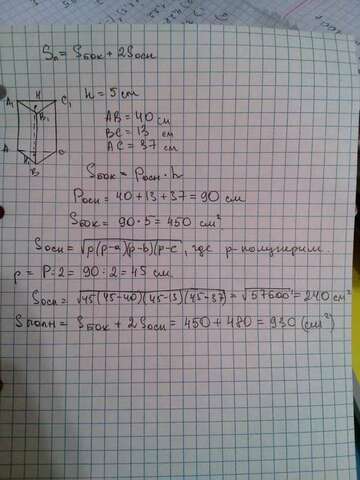 Sп = Sбок + 2Sосн
H = 5 см
A₁ H C₁
B₁
AB = 40 см
BC = 13 см
AC = 37 см
A C
B
Sбок = Pосн · h
Pосн = 40 + 13 + 37 = 90 см
Sбок = 90 · 5 = 450 см²
Sосн = √p(p-a)(p-b)(p-c), где p-полуперим.
p = P:2 = 90:2 = 45 см
Sосн = √45(45-40)(45-13)(45-37) = √57600 = 240 см²
Sполн = Sбок + 2Sосн = 450 + 480 = 930 (см²)